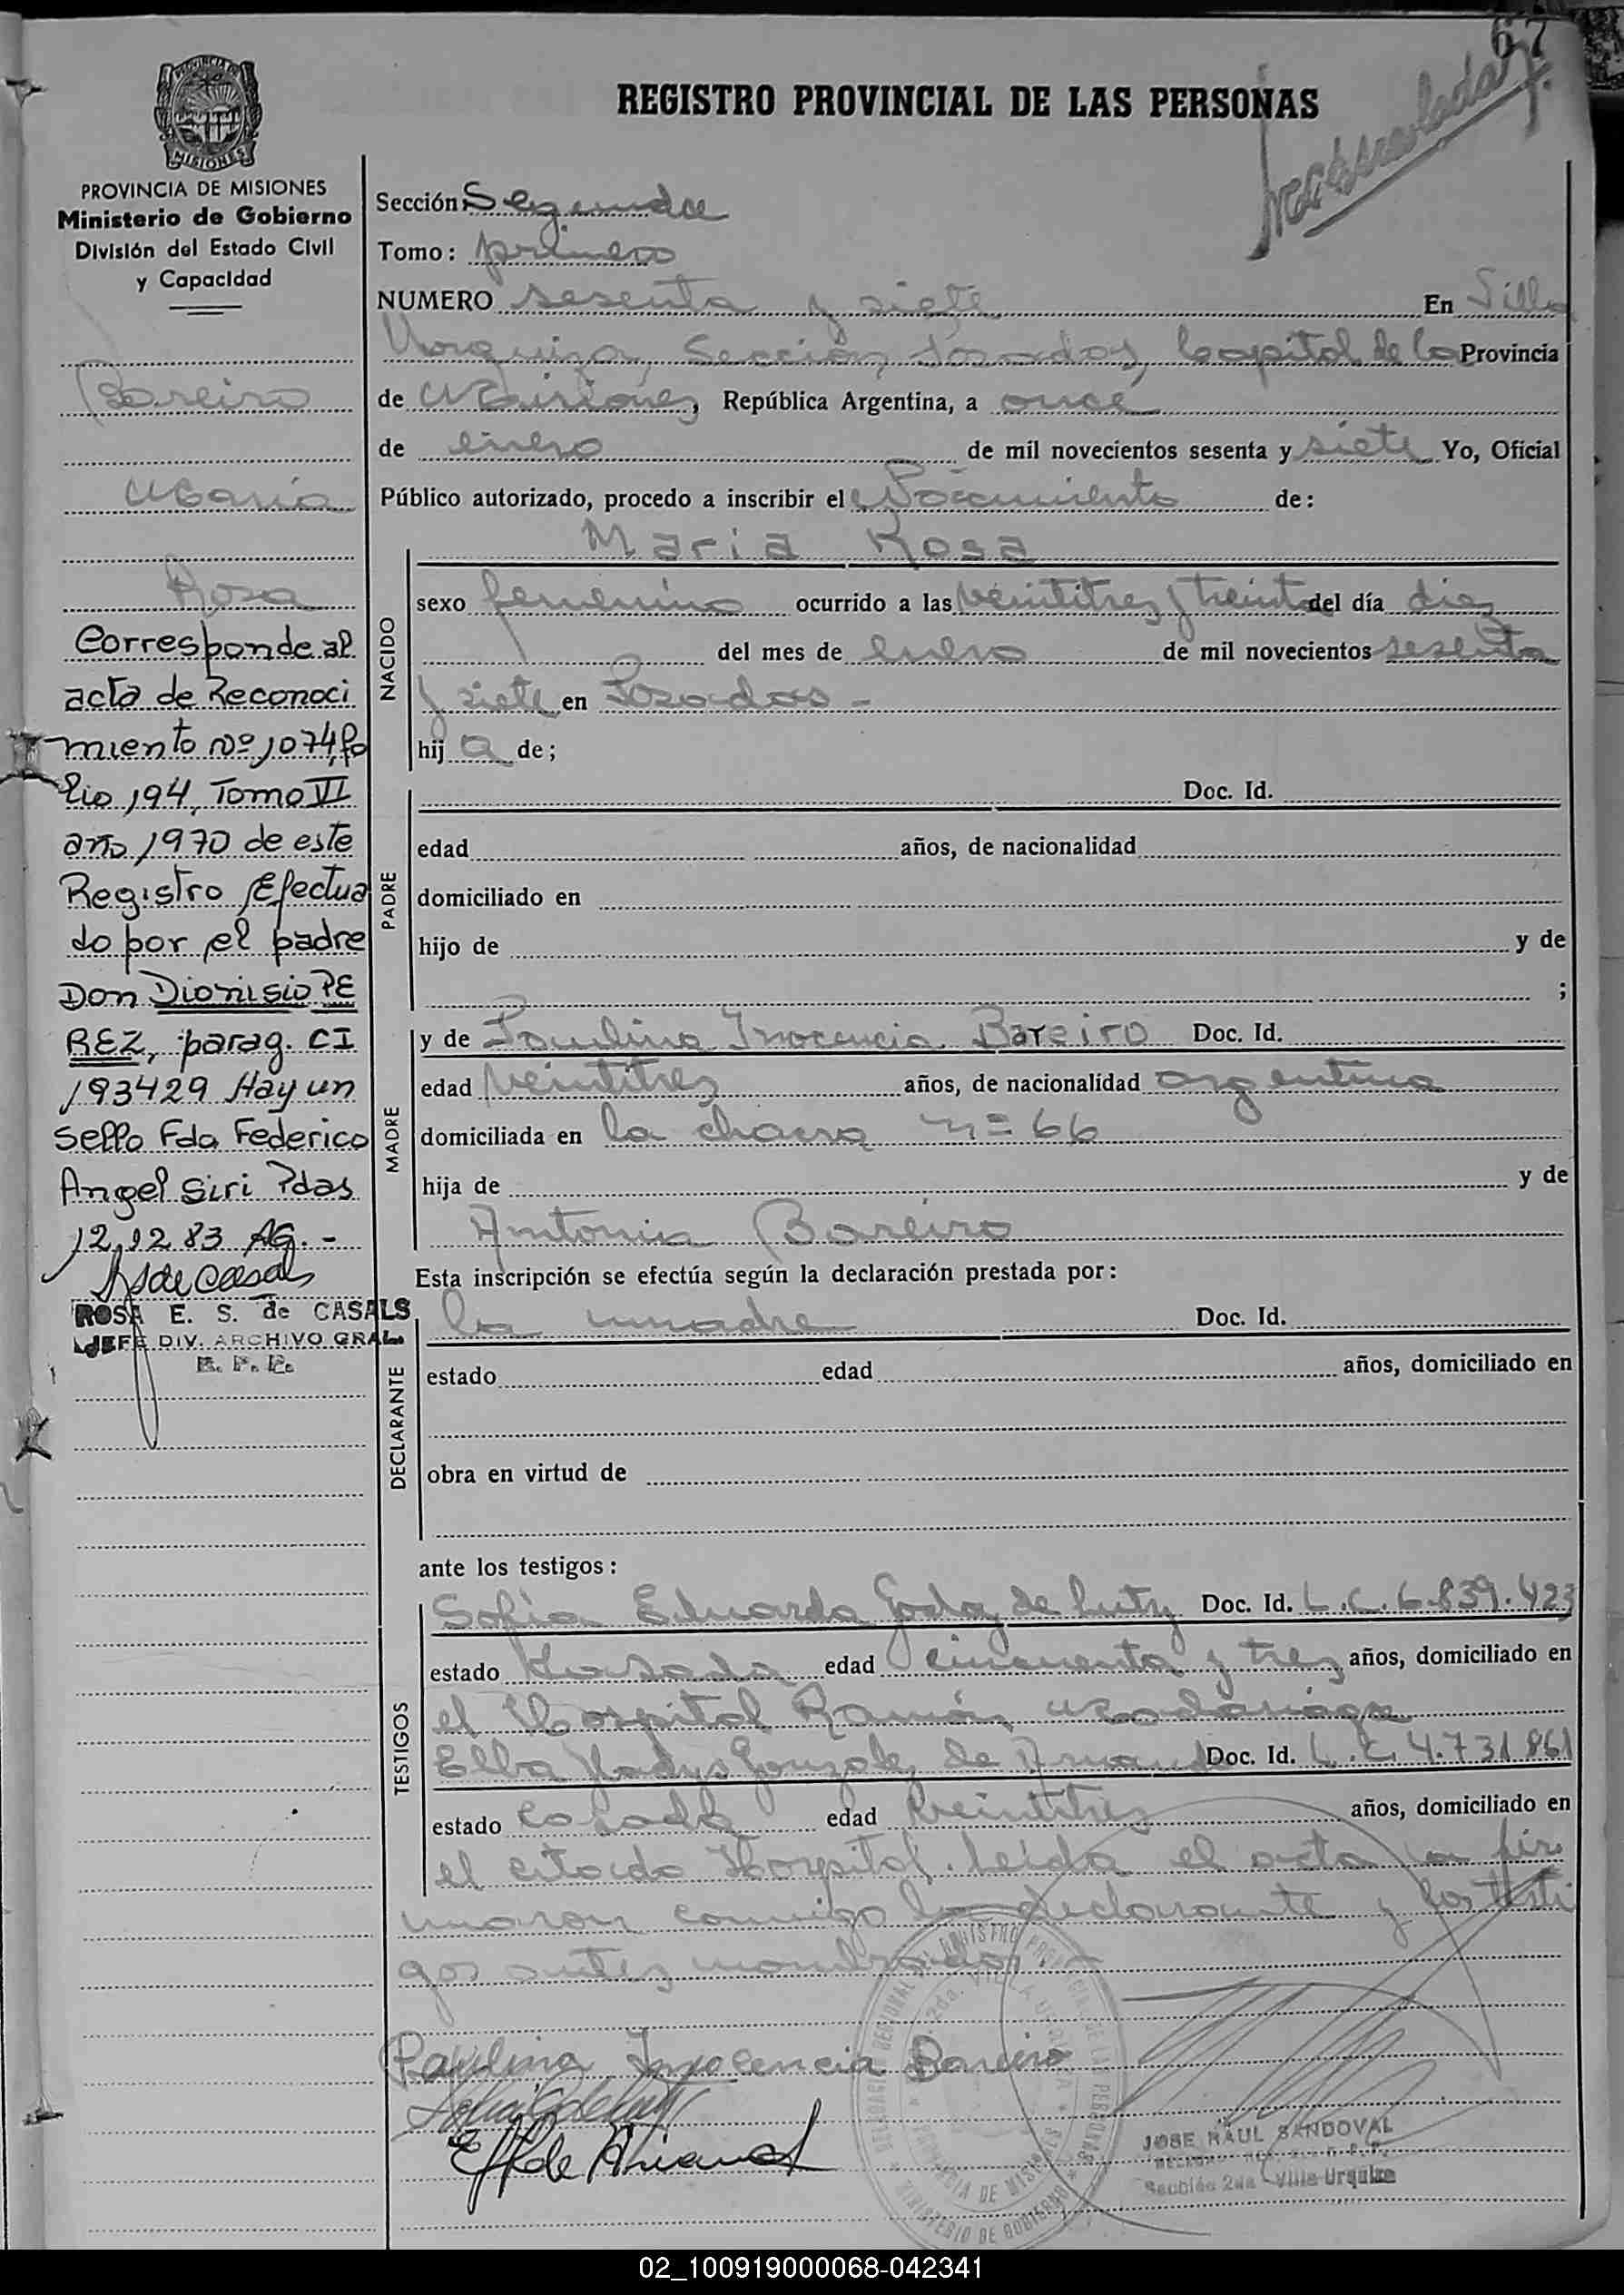 67
REGISTRO PROVINCIAL DE LAS PERSONAS
MISIONES
PROVINCIA DE MISIONES
Ministerio de Gobierno
División del Estado Civil
y Capacidad
Bareiro
Maria
Rosa
Corresponde al
acta de Reconoci
miento Nº 1074, fo
lio 194, Tomo VI
año 1970 de este
Registro Efectua
do por el padre
Don Dionisio PE
REZ, parag. CI
193429 Hay un
sello Fdo Federico
Angel Siri Pdas
12,12 83 AG. -
ROSA E. S. de CASALS
JEFE DIV. ARCHIVO GRAL
R. P. P.
Sección: Segunda
Tomo: primero
NUMERO sesenta y siete En Villa
Urquiza, Sección, Posadas, Capital de la Provincia
de Misiones, República Argentina, a once
de enero de mil novecientos sesenta y siete Yo, Oficial
Público autorizado, procedo a inscribir el Nacimiento de:
NACIDO
Maria Rosa
sexo femenino ocurrido a las veintitres y treinta del día diez
del mes de enero de mil novecientos sesenta
y siete en Posadas -
hij a de;
PADRE
Doc. Id.
edad años, de nacionalidad
domiciliado en
hijo de y de
;
MADRE
y de Paulina Inocencia Bareiro Doc. Id.
edad veintitres años, de nacionalidad argentina
domiciliada en la chacra nº 66
hija de y de
Antonia Bareiro
Esta inscripción se efectúa según la declaración prestada por:
DECLARANTE
la madre Doc. Id.
estado edad años, domiciliado en
obra en virtud de
ante los testigos:
TESTIGOS
Sofia Eduarda Godoy de Lutz Doc. Id. L.C. 6.839.423
estado casada edad cincuenta y tres años, domiciliado en
el Hospital Ramón Madariaga
Elba Gladys Gonzalez de Doc. Id. L.C. 4.731.861
estado casada edad veintitres años, domiciliado en
el citado Hospital. Leida el acta la fir
maron conmigo la declarante y los testi
gos antes nombrados. -
Paulina Inocencia Bareiro
JOSE RAUL SANDOVAL
Sección 2da Villa Urquiza
02_100919000068-042341